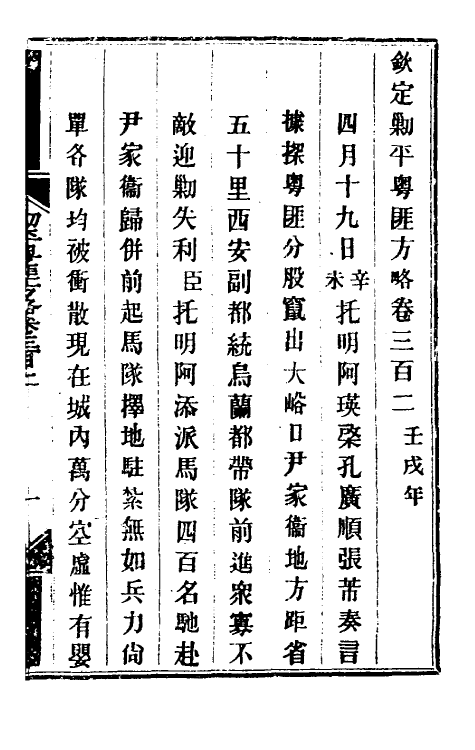 欽定剿平粵匪方略卷三百二 壬戌年
四月十九日辛未托明阿瑛棨孔廣順張芾奏言
據探粵匪分股竄出大峪口尹家衞地方距省
五十里西安副都統烏蘭都帶隊前進衆寡不
敵迎剿失利臣托明阿添派馬隊四百名馳赴
尹家衞歸併前起馬隊擇地駐紮無如兵力尙
單各隊均被衝散現在城內萬分空虛惟有嬰
一